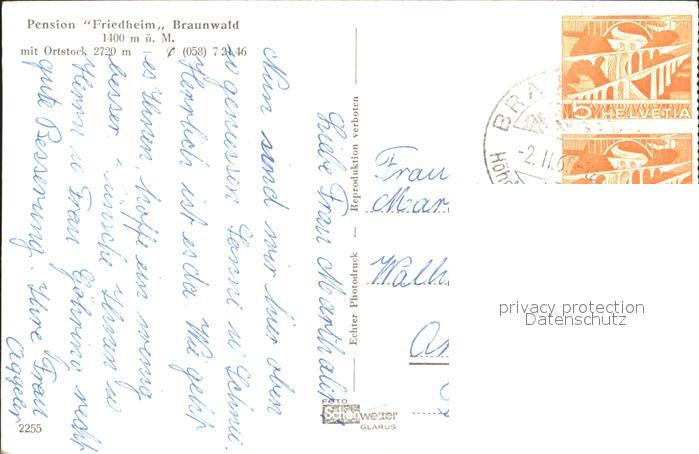 Pension "Friedheim„ Braunwald
1400 m ü. M.
mit Ortstock 2720 m (058) 7 2 46
Liebe Frau Marthaler
Nun sind wir hier oben
u geniessen Sonne u Schnee.
Herrlich ist es da Wie geht
es Ihnen, hoffe ein wenig
besser. wünsche Ihnen u
Herrn u Frau Göhring recht
gute Besserung. Ihre Frau
2255
Echter Photodruck — Reproduktion verboten
Frau
Mar
FOTO
Schönwetter
GLARUS
BRA
-2.II.6
Höhe
5 HELVETIA
privacy protection
Datenschutz